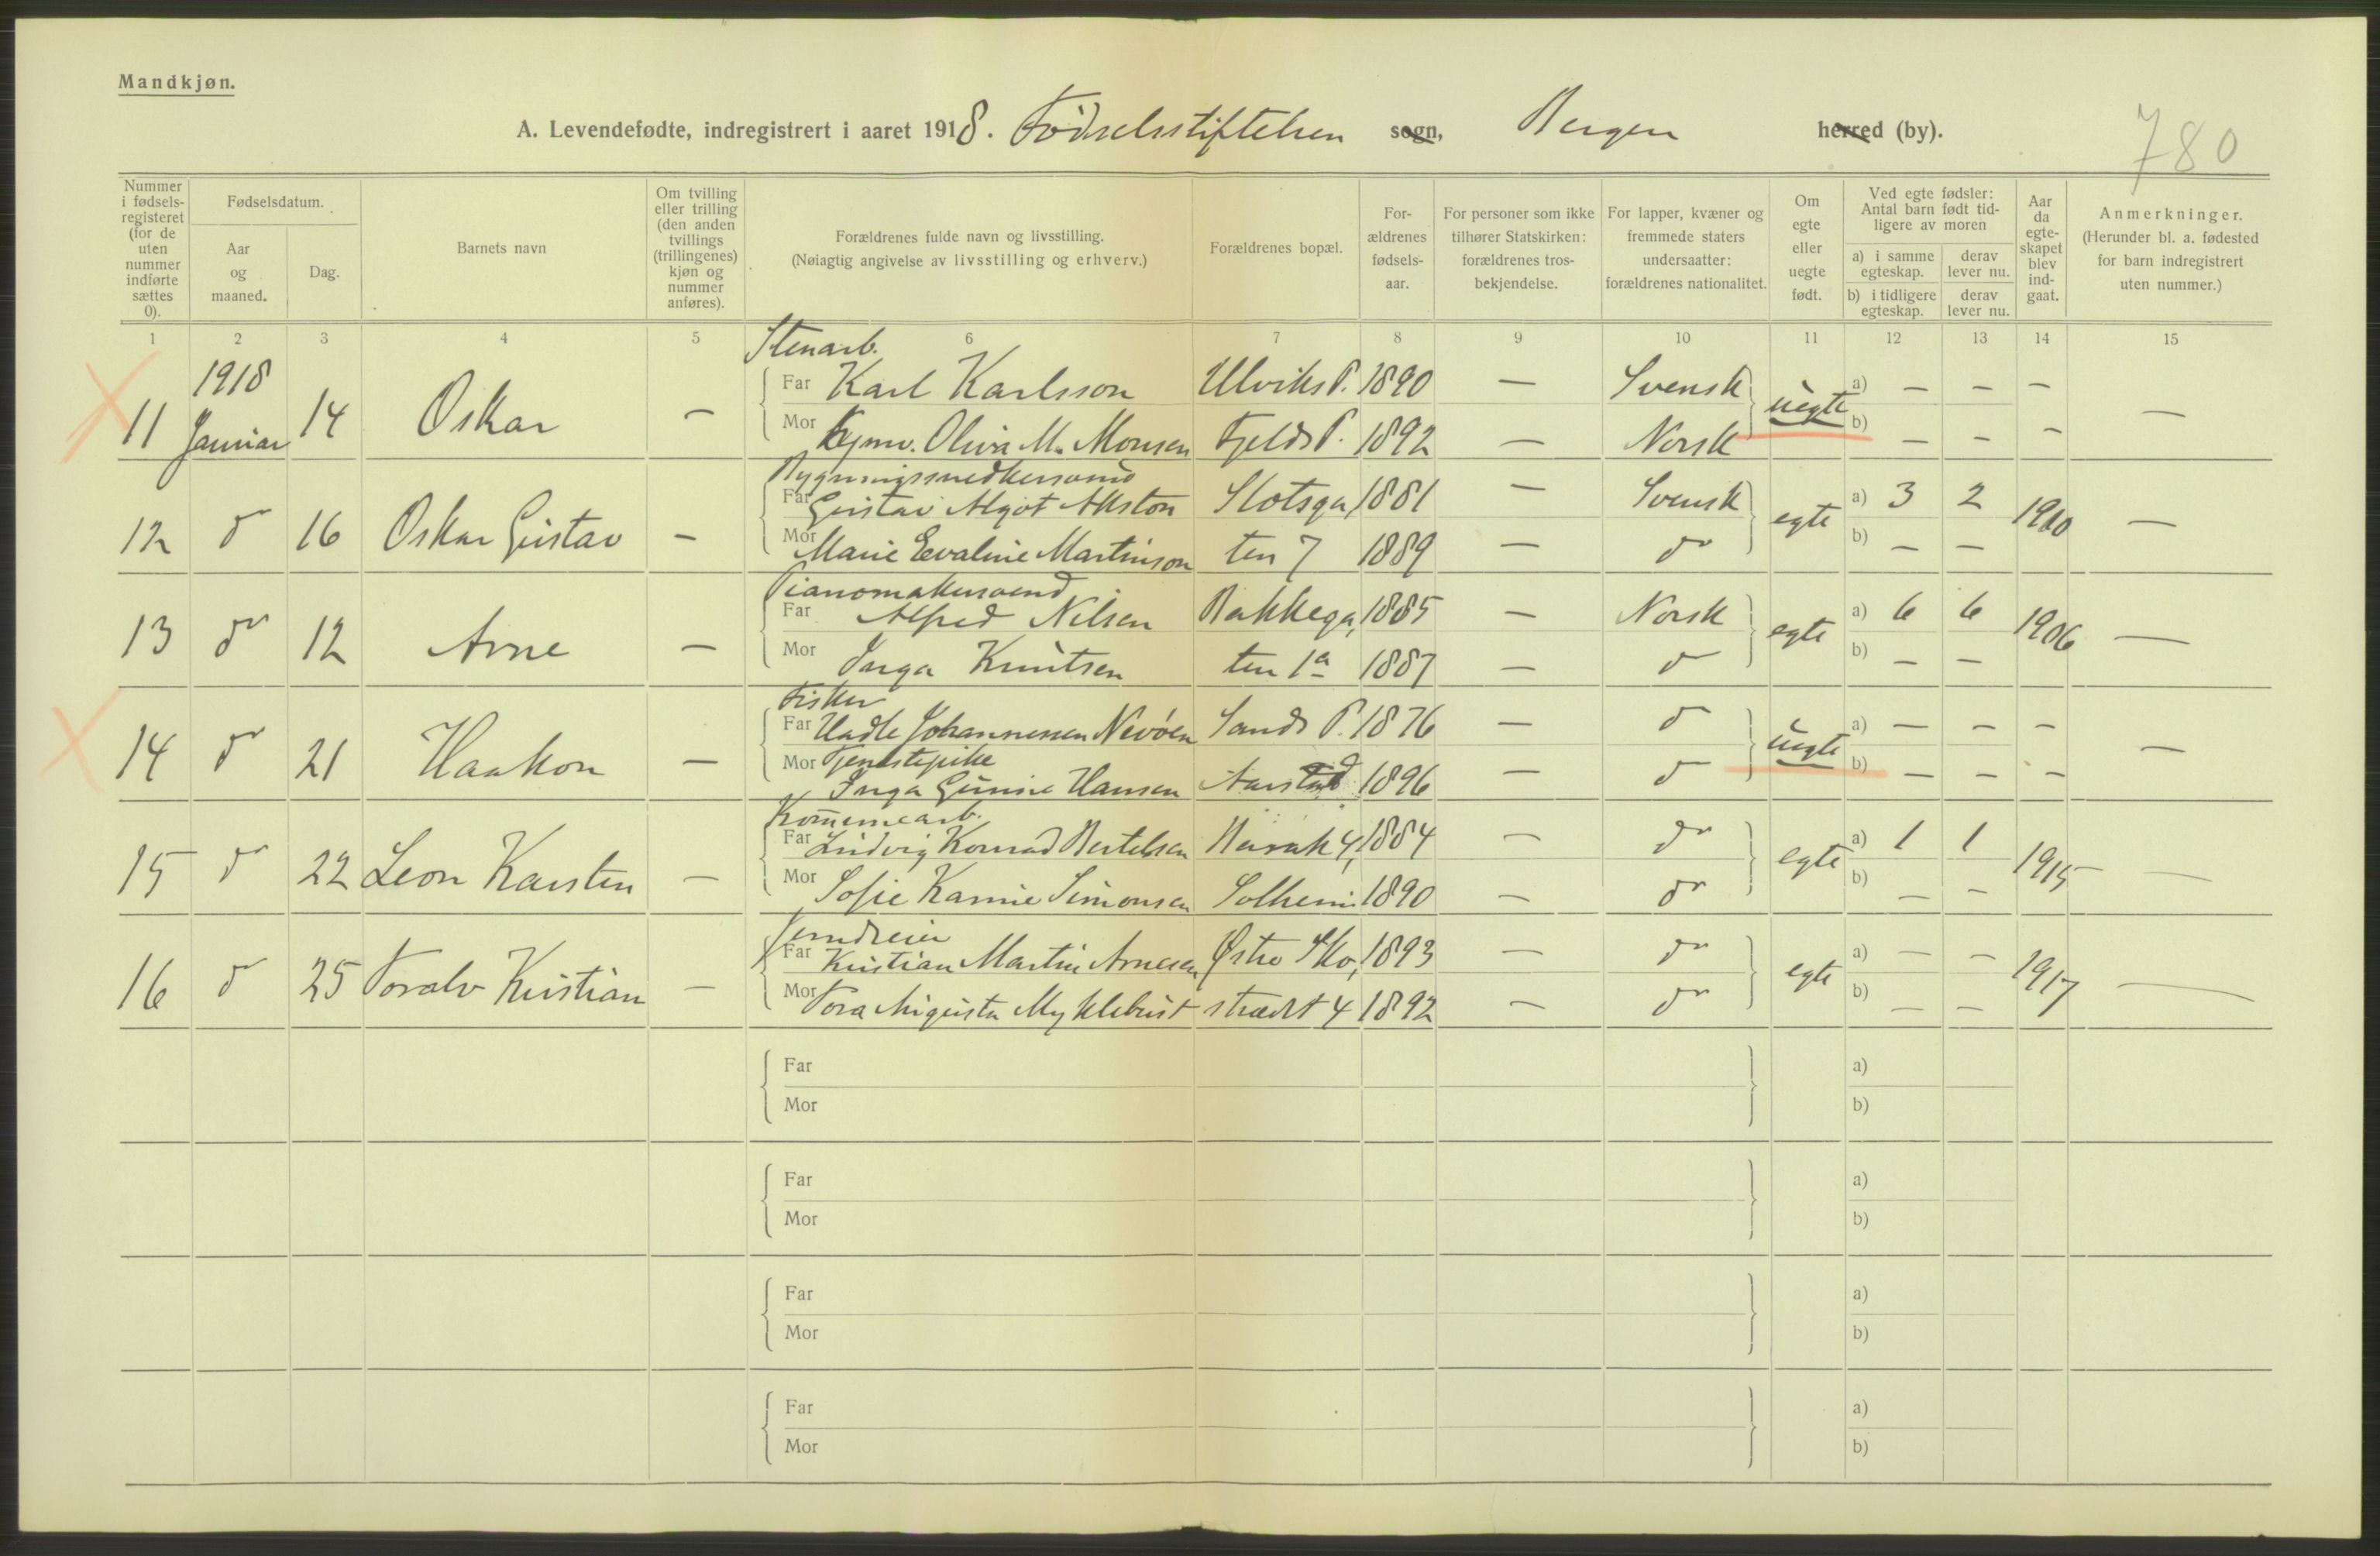 Mandkjøn.
A. Levendefødte, indregistrert i aaret 1918. Födselsstiftelsen sogn, Bergen herred (by).
780
Nummer i fødsels-registeret (for de uten nummer indførte sættes 0).
Fødselsdatum.
Aar og maaned.
Dag.
Barnets navn
Om tvilling eller trilling (den anden tvillings (trillingenes) kjøn og nummer anføres).
Forældrenes fulde navn og livsstilling.
(Nøiagtig angivelse av livsstilling og erhverv.)
Forældrenes bopæl.
For-ældrenes fødsels-aar.
For personer som ikke tilhører Statskirken: forældrenes tros-bekjendelse.
For lapper, kvæner og fremmede staters undersaatter: forældrenes nationalitet.
Om egte eller uegte født.
Ved egte fødsler: Antal barn født tid-ligere av moren
a) i samme egteskap.
derav lever nu.
b) i tidligere egteskap.
derav lever nu.
Aar da egte-skapet blev ind-gaat.
Anmerkninger.
(Herunder bl. a. fødested for barn indregistrert uten nummer.)
1 2 3 4 5 6 7 8 9 10 11 12 13 14 15
Stenarb.
1918
Far Karl Karlsson Ulviks P. 1890 — Svensk a) — — —
11 Januar 14 Oskar — uegte —
Mor Oliva M. Monsen Fjelds P. 1892 — Norsk b) — — —
Bygningssnedkersvend
Far Gustav Algot Alkston Slotsga 1881 — Svensk a) 3 2
12 d 16 Oskar Gustav — egte 1910 —
Mor Marie Evaline Martinson ten 7 1889 — do b) — —
Pianomakersvend
Far Alfred Nilsen Bakkega 1885 — Norsk a) 6 6
13 do 12 Arne — egte 1906 —
Mor Inga Knutsen ten 1a 1887 — do b) — —
Fisker
Far Hadle Johannessen Nevöen Sands P. 1876 — do a) — — —
14 do 21 Haakon — uegte —
Mor Tjenestepike
Inga Hansen Aarstad 1896 — do b) — — —
Far Ludvig Konrad Bertelsen 4, 1884 — do a) 1 1
15 do 22 Leon Karsten — egte 1915 —
Mor Sofie Simonsen Solheim 1890 — do b) — —
Jerndreier
Far Kristian Martin Arnesen Østre Sko, 1893 — do a) — —
16 do 25 Toralv Kristian — egte 1917 —
Mor Tora Augusta Myklebust strædet 4 1892 — do b) — —
Far a)
Mor b)
Far a)
Mor b)
Far a)
Mor b)
Far a)
Mor b)